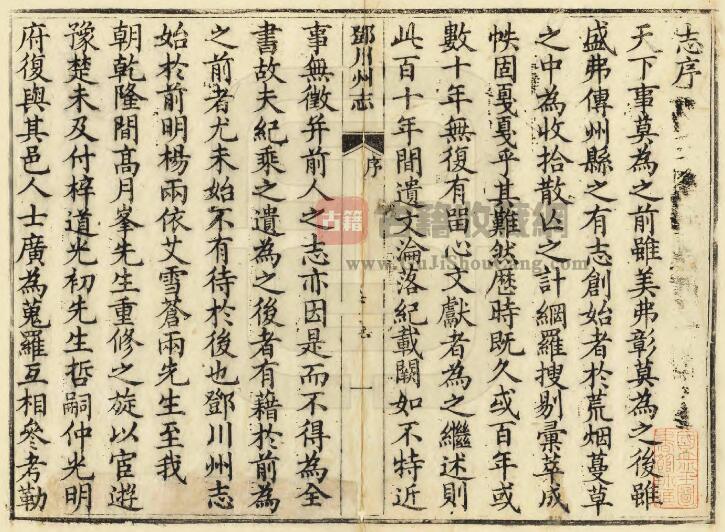 志序
天下事莫為之前雖美弗彰莫為之後雖
盛弗傳州縣之有志創始者於荒烟蔓草
之中為收拾散亾之計網羅搜剔彙萃成
帙固戛戛乎其難然歷時既久或百年或
數十年無復有畱心文獻者為之繼述則
此百十年間遺文淪落紀載闕如不特近
鄧川州志
序
一
事無徵并前人之志亦因是而不得為全
書故夫紀乘之遺為之後者有藉於前為
之前者尤未始不有待於後也鄧川州志
始於前明楊兩依艾雪蒼兩先生至我
朝乾隆間高月峯先生重修之旋以宦遊
豫楚未及付梓道光初先生哲嗣仲光明
府復與其邑人士廣為蒐羅互相參考勒
古籍
古籍收藏網